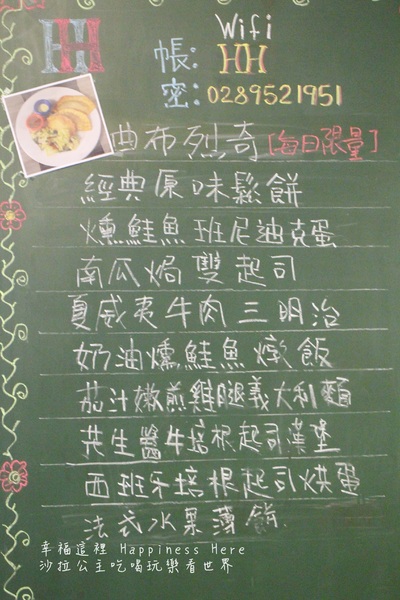 HH
Wifi
帳: HH
密: 0289521951
曲布烈奇 [每日限量]
經典原味鬆餅
燻鮭魚班尼迪克蛋
南瓜焗雙起司
夏威夷牛肉三明治
奶油燻鮭魚燉飯
茄汁嫩煎雞腿義大利麵
花生醬牛培根起司漢堡
西班牙培根起司烘蛋
法式水果薄餅
幸福這裡 Happiness Here
沙拉公主吃喝玩樂看世界